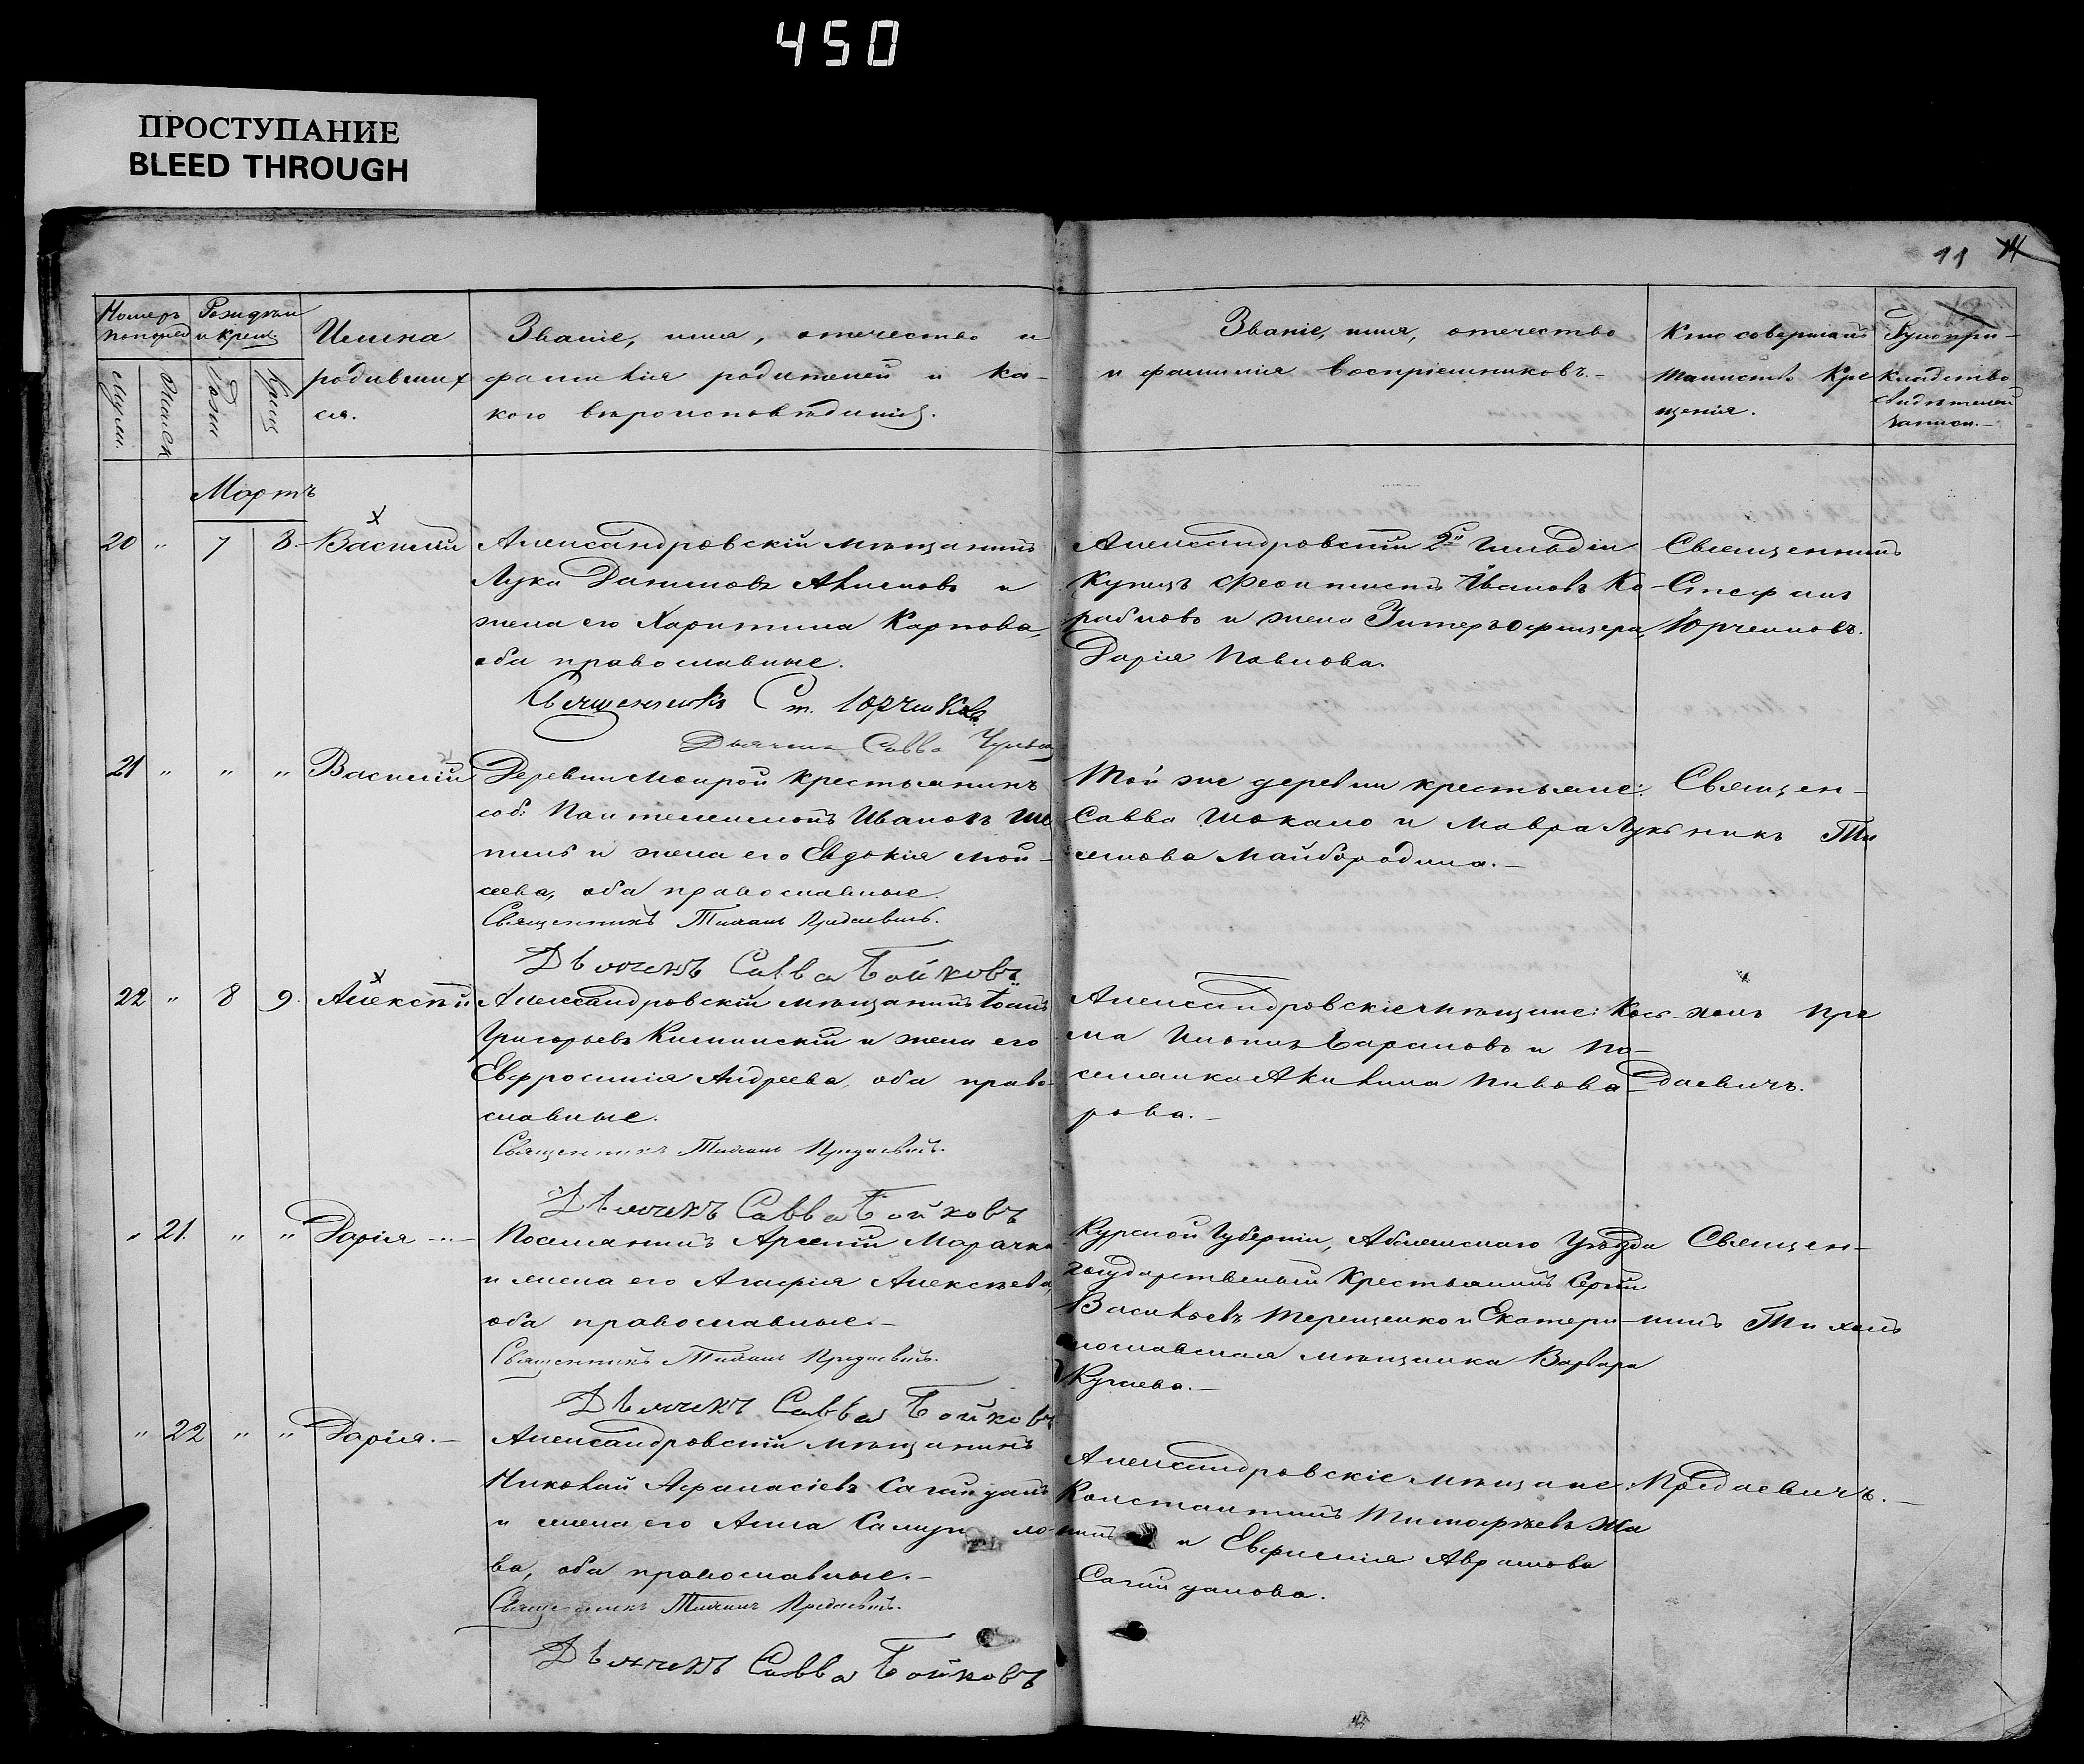 450
ПРОСТУПАНИЕ
BLEED THROUGH
11
Номеръ
Имена
родивших
ся.
Званіе, имя, отечество и
фамилія родителей и ка-
кого вѣроисповѣданія.
Званіе, имя, отечество
и фамилія воспріемниковъ.-
Кто совершалъ
таинство Кре
щенія.
Рукопри-
кладство
свидѣтелей
Мартъ
20 " 7 8. Василій
Александровскій мѣщанинъ
Лука Даниловъ и
жена его Харитина Карпова,
оба православные.
Священникъ Ст. Юрченковъ
Дьячекъ Савва
Александровскій 2й Гильдіи
Купецъ Ивановъ Ко-
раблевъ и жена Унтеръ офицера
Дарія Павлова.
Священникъ
Стефанъ
Юрченковъ.
21 " " " Василій
Деревни Мокрой крестьянинъ
соб: Пантелеимонъ Ивановъ
и жена его Евдокія Мой-
сеева, оба православные.
Священникъ Тихонъ Предаевичъ.
Дьячекъ Савва Бойковъ
Той же деревни крестьяне:
Савва Шокало и Мавра Лукъ
янова Майбородина.-
Священ-
никъ Ти
22 " 8 9. Алексѣй
Александровскій мѣщанинъ Іоанъ
Григорьевъ и жена его
Евфросинія Андреева, оба право-
славные.
Священникъ Тихонъ Предаевичъ.
Дьячекъ Савва Бойковъ
Александровскіе мѣщане: Косъ-
ма Барановъ и По-
селянка Акилина Пивова-
рова.-
хонъ Пре
даевичъ.
" 21. " " Дарія
Поселянинъ Арсеній
и жена его Агафія Алексѣева,
оба православные.-
Священникъ Тихонъ Предаевичъ.
Дьячекъ Савва Бойковъ
Курской Губерніи, Уѣзда
государственый Крестьянинъ Сергій
Васильевъ Терещенко и Екатери-
нославская мѣщанка Варвара
Священ-
никъ Тихонъ
" 22 " " Дарія.-
Александровскій мѣщанинъ
Николай Афанасіевъ
и жена его Анна
ва, оба православные.-
Священникъ Тихонъ Предаевичъ.
Дьячекъ Савва Бойковъ
Александровскіе мѣщане:
Константинъ Тимофѣевъ
и Евфимія Аврамова
Предаевичъ.-